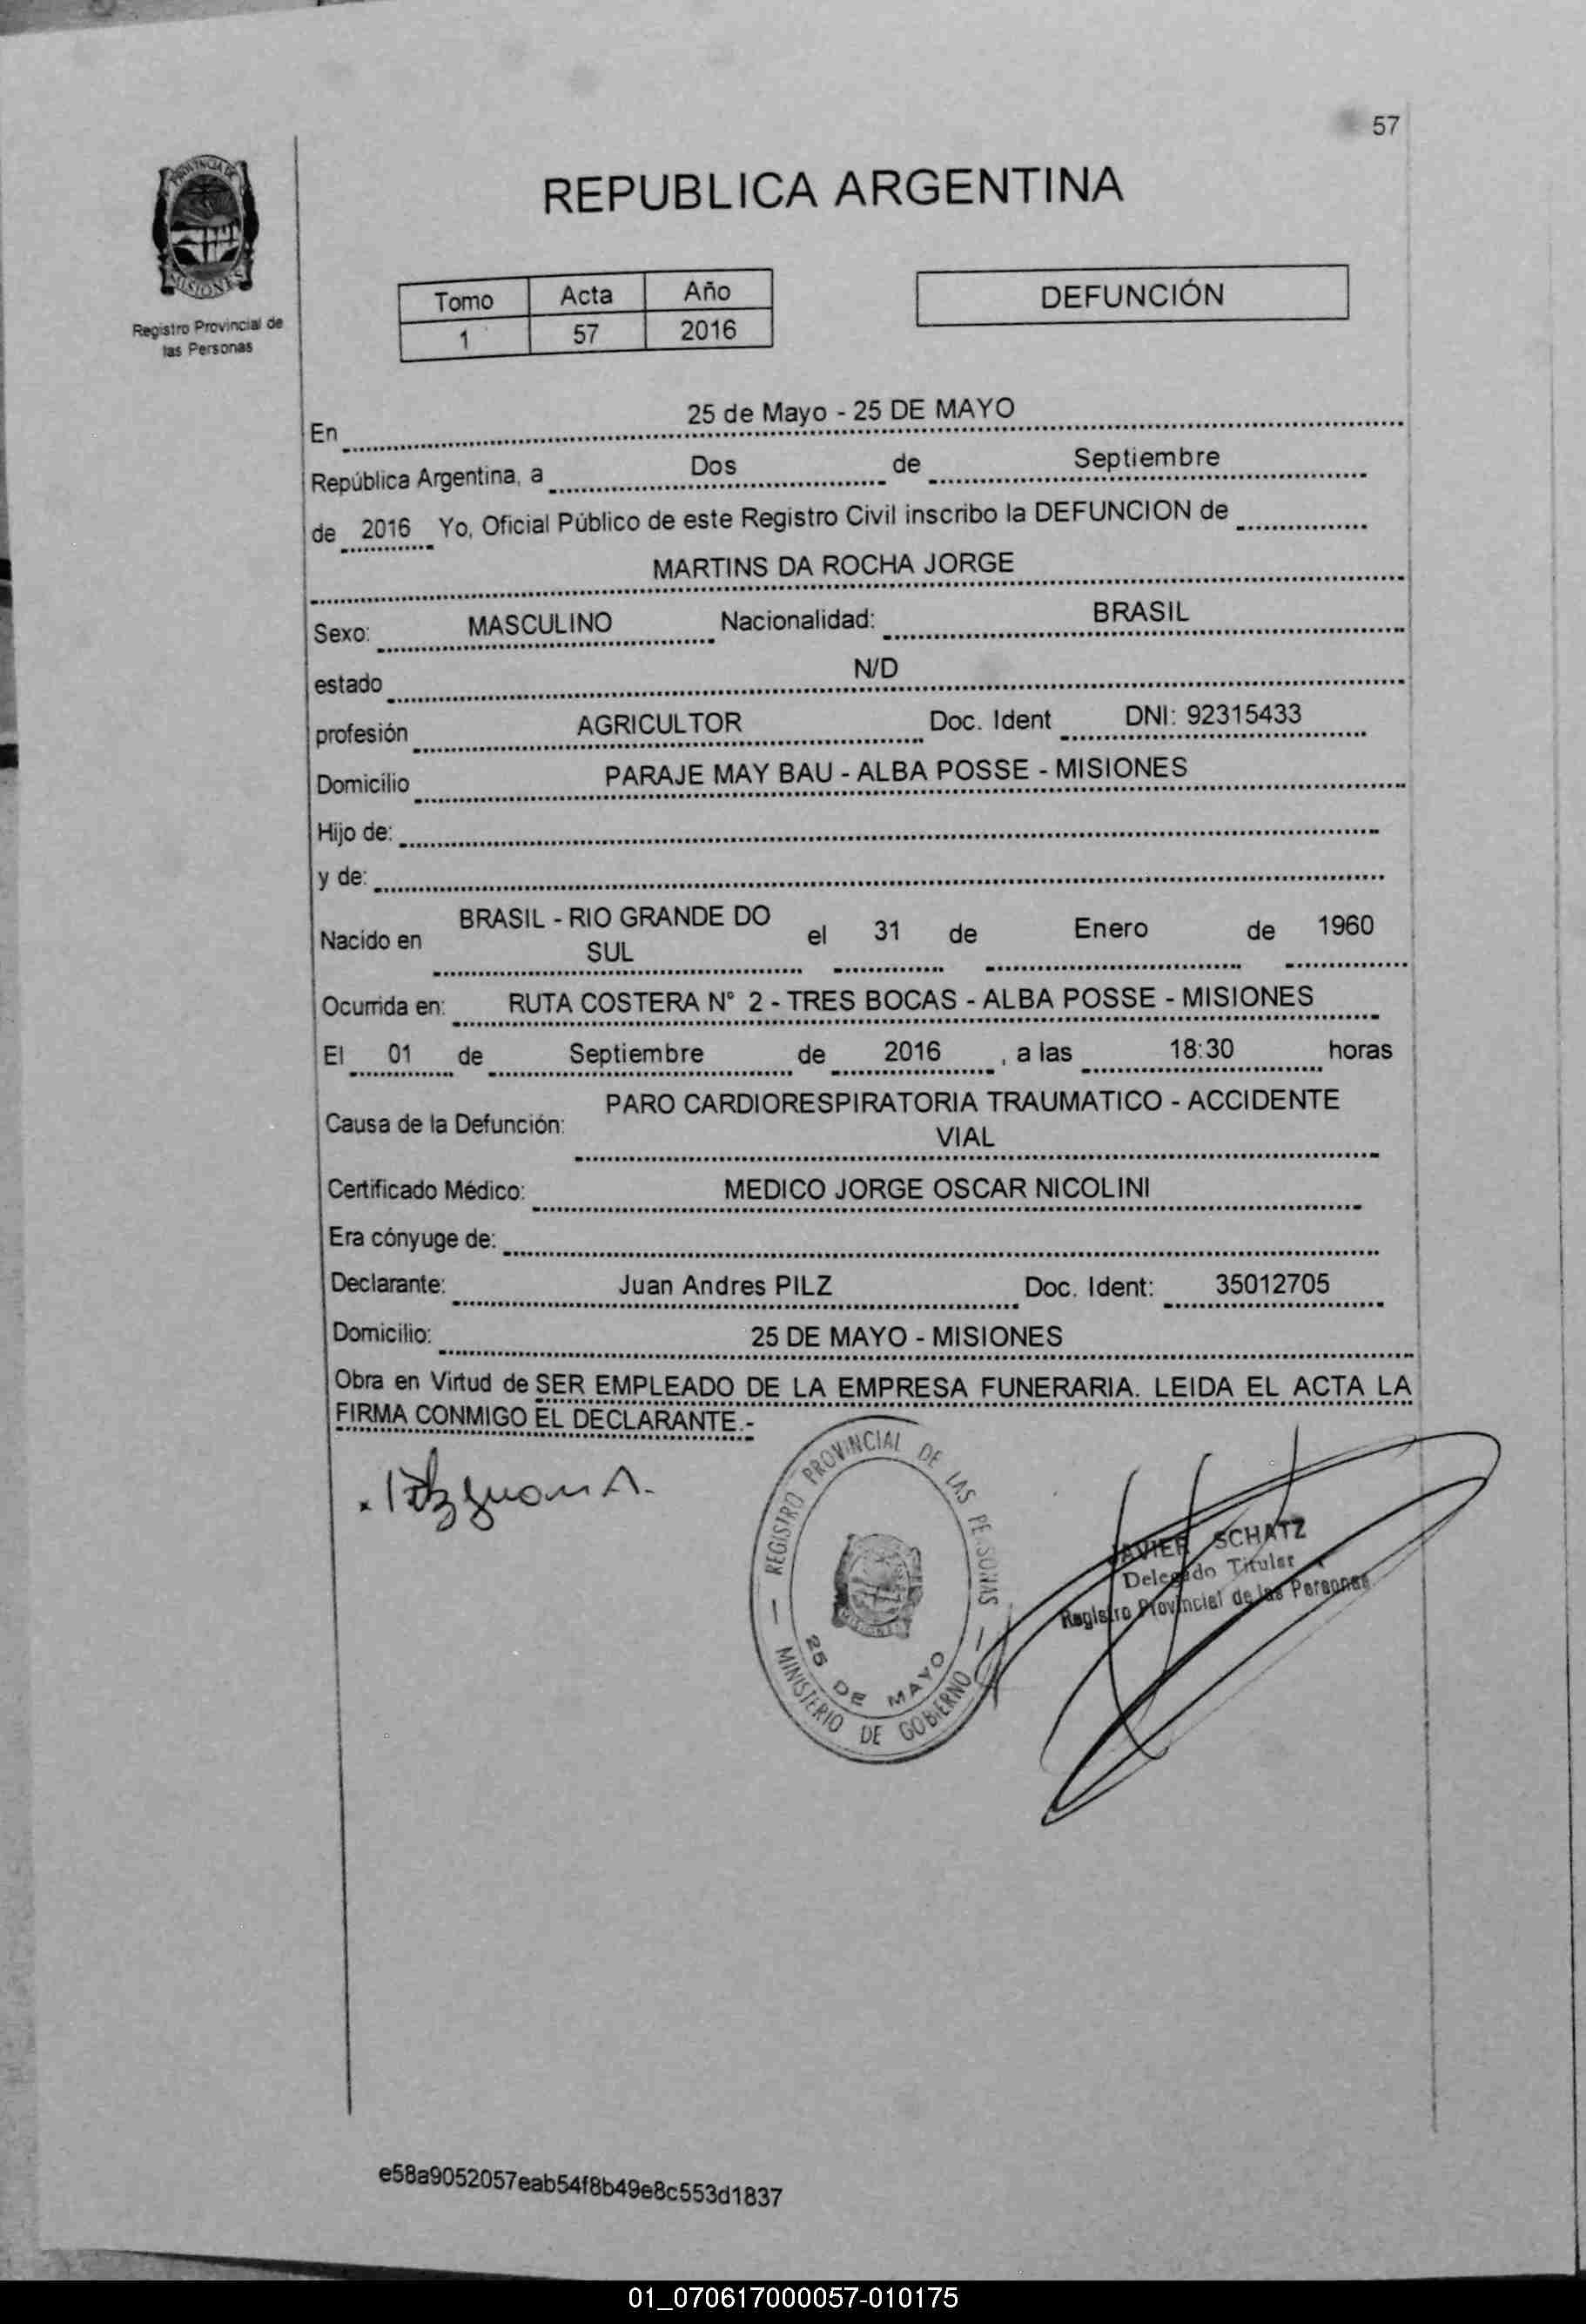 57
PROVINCIA DE
MISIONES
Registro Provincial de
las Personas
REPUBLICA ARGENTINA
Tomo Acta Año
1 57 2016
DEFUNCIÓN
En 25 de Mayo - 25 DE MAYO
República Argentina, a Dos de Septiembre
de 2016 Yo, Oficial Público de este Registro Civil inscribo la DEFUNCION de
MARTINS DA ROCHA JORGE
Sexo: MASCULINO Nacionalidad: BRASIL
estado N/D
profesión AGRICULTOR Doc. Ident DNI: 92315433
Domicilio PARAJE MAY BAU - ALBA POSSE - MISIONES
Hijo de:
y de:
Nacido en BRASIL - RIO GRANDE DO SUL el 31 de Enero de 1960
Ocurrida en: RUTA COSTERA N° 2 - TRES BOCAS - ALBA POSSE - MISIONES
El 01 de Septiembre de 2016 , a las 18:30 horas
Causa de la Defunción: PARO CARDIORESPIRATORIA TRAUMATICO - ACCIDENTE
VIAL
Certificado Médico: MEDICO JORGE OSCAR NICOLINI
Era cónyuge de:
Declarante: Juan Andres PILZ Doc. Ident: 35012705
Domicilio: 25 DE MAYO - MISIONES
Obra en Virtud de SER EMPLEADO DE LA EMPRESA FUNERARIA. LEIDA EL ACTA LA
FIRMA CONMIGO EL DECLARANTE.-
Pilz Juan A.
REGISTRO PROVINCIAL DE LAS PERSONAS
25 DE MAYO
MINISTERIO DE GOBIERNO
JAVIER SCHATZ
Delegado Titular
Registro Provincial de las Personas
e58a9052057eab54f8b49e8c553d1837
01_070617000057-010175